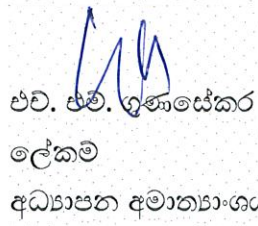 එච්. එම්. ගුණසේකර
ලේකම්
අධ්‍යාපන අමාත්‍යාංශය